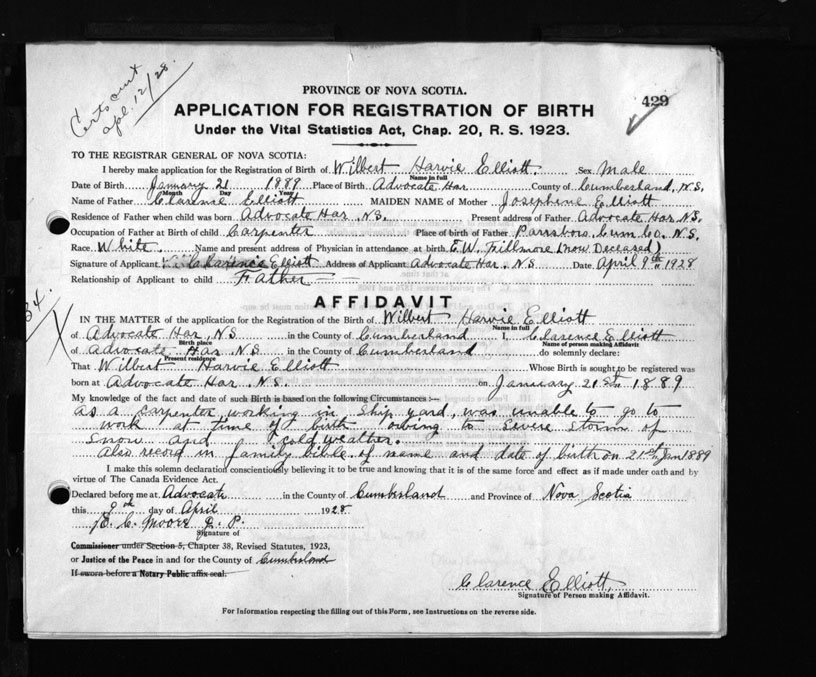 Certs out
apl. 12/28.
429
PROVINCE OF NOVA SCOTIA.
APPLICATION FOR REGISTRATION OF BIRTH
Under the Vital Statistics Act, Chap. 20, R. S. 1923.
TO THE REGISTRAR GENERAL OF NOVA SCOTIA:
I hereby make application for the Registration of Birth of Wilbert Harvie Elliott. Sex Male
Name in full
Date of Birth January 21 1889 Place of Birth Advocate Har County of Cumberland, N.S.
Month Day Year
Name of Father Clarence Elliott MAIDEN NAME of Mother Josephine Elliott
Residence of Father when child was born Advocate Har N.S. Present address of Father Advocate Har. N.S.
Occupation of Father at Birth of child Carpenter Place of birth of Father Parrsboro, Cum Co. N.S.
Race White. Name and present address of Physician in attendance at birth E.W. Fillmore (now Deceased)
Signature of Applicant Clarence Elliott Address of Applicant Advocate Har, N.S Date April 9th 1928
Relationship of Applicant to child Father
AFFIDAVIT
34.
IN THE MATTER of the application for the Registration of the Birth of Wilbert Harvie Elliott
Name in full
of Advocate Har, N.S in the County of Cumberland I, Clarence Elliott
Birth place Name of person making Affidavit
of Advocate Har N.S. in the County of Cumberland do solemnly declare:
Present residence
That Wilbert Harvie Elliott Whose Birth is sought to be registered was
born at Advocate Har. N.S. on January 21st 1889
My knowledge of the fact and date of such Birth is based on the following Circumstances:—
As a carpenter, working in ship yard, was unable to go to
work at time of birth owing to severe storm of
snow and cold weather.
Also record in family bible of name and date of birth on 21st Jan 1889
I make this solemn declaration conscientiously believing it to be true and knowing that it is of the same force and effect as if made under oath and by
virtue of The Canada Evidence Act.
Declared before me at Advocate in the County of Cumberland and Province of Nova Scotia
this 9th day of April 1928
E. C. Moore J. P.
Signature of
Commissioner under Section 5, Chapter 38, Revised Statutes, 1923,
or Justice of the Peace in and for the County of Cumberland
If sworn before a Notary Public affix seal.
Clarence Elliott,
Signature of Person making Affidavit.
For Information respecting the filling out of this Form, see Instructions on the reverse side.